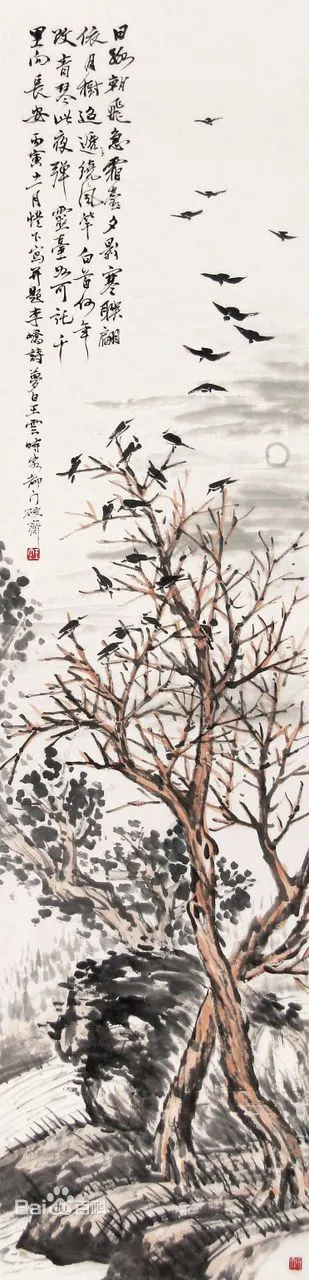 日路朝飛急霜臺夕影寒聯翩
依月樹迢遞繞風竿白首何年
改青琴此夜彈靈臺如可託千
里向長安 丙寅十一月燈下寫并題李嶠詩 夢白王雲時客都門
Bai 百科